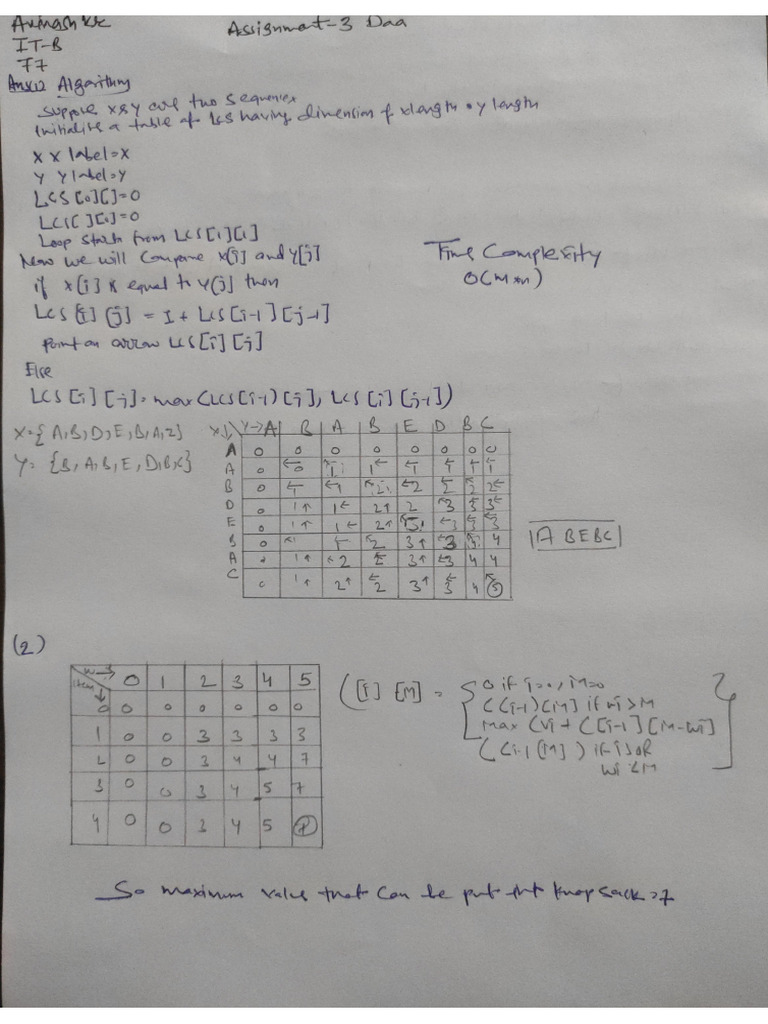 Avinash KK
Assignment-3 Daa
IT-B
77
Ans(1) Algorithm
Suppose x & y are two sequences
Initialise a table of LCS having dimension of xlength * y length
X X label=X
Y Y label=Y
LCS[0][]=0
LCS[][0]=0
Loop starts from LCS[1][1]
Now we will compare X[i] and Y[j]
if X[i] is equal to Y[j] then
LCS[i][j] = 1 + LCS[i-1][j-1]
point an arrow LCS[i][j]
Else
LCS[i][j]= max(LCS[i-1][j], LCS[i][j-1])
Time Complexity
O(m*n)
X={A,B,D,E,B,A,Z}
Y= {B,A,B,E,D,B,C}
X↓ Y→ A B A B E D B C
A 0 0 0 0 0 0 0 0
A 0 ←0 1 1← ←1 ↖1 1 1
B 0 ←1 ←1 2 ←2 2 2 2←
D 0 1↑ 1← 2↑ 2 ↖3 3 3←
E 0 1↑ 1← 2↑ 3 ←3 3 3
B 0 1 1 2 3↑ ←3 4
A 1↑ ↖2 2 3↑ ←3 4 4
C 0 1↑ 2↑ 2 3↑ 3 4 5
ABEBC
(2)
w→ 0 1 2 3 4 5
item↓
0 0 0 0 0 0 0
1 0 0 3 3 3 3
2 0 0 3 4 4 7
3 0 0 3 4 5 7
4 0 0 3 4 5 7
C[i][M] = { 0 if i=0, M=0
C[i-1][M] if wi>M
Max (Vi + C[i-1][M-wi]
C[i-1][M]) if i>0 or
wi<M
So maximum value that can be put int knapsack=7